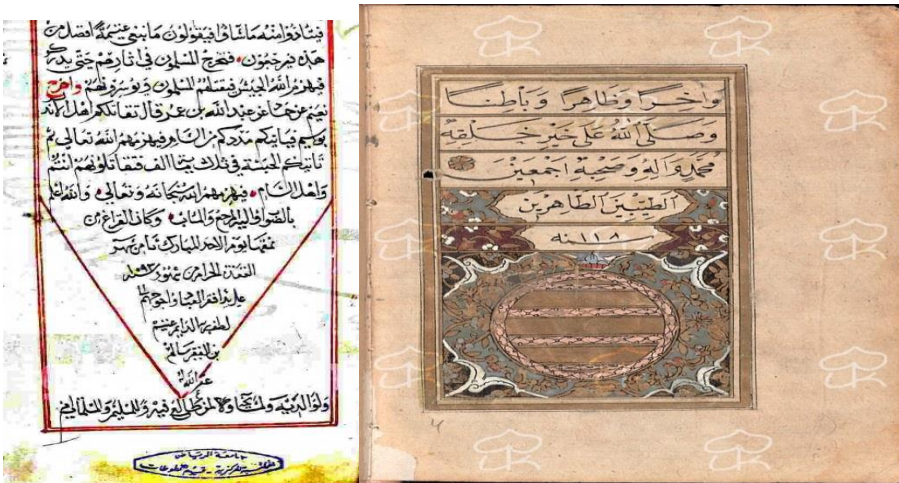 فيتادوا منه ما شاؤا فيقولون ما ينبغي غنيمة افضل من
هذه فيرجعون فتخرج المسلمون في اثارهم حتى يدركو
فيهزم الله الجيش فيقتلهم المسلمون ويوسرونهم واخرج
نعيم عن عبد الله بن عمر قال تقاتلكم اهل الاندلس
فياتيكم مددكم من الشام فيهزمهم الله تعالى ثم
تاتيكم الحبشة في ثلث الف فتقاتلونهم انتم
واهل الشام فيهزمهم الله سبحانه وتعالى والله اعلم
بالصواب واليه المرجع والمآب وكان الفراغ من
يوم الاحد المبارك ثامن شهر
القعدة الحرام من شهور سنة
على يد افقر العباد واحوجهم
غنيم
بن الفقير سالم
عفى الله
ولوالديه ولمن فيه وللمسلمين
جامعة الرياض
المكتبة المركزية - قسم المخطوطات
واخرا وظاهرا وباطنا
وصلى الله على خير خلقه
محمد واله وصحبه اجمعين
الطيبين الطاهرين
سنه ١١٨